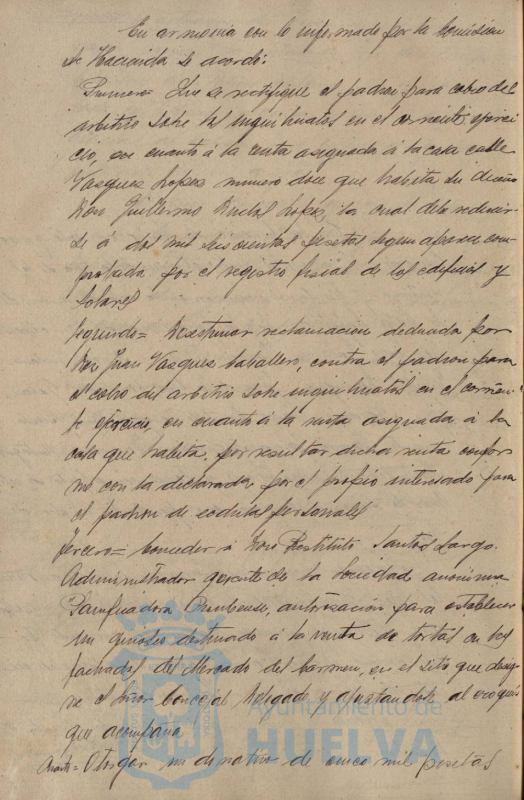 En armonia con lo informado por la Comision
de Hacienda se acordó:
Primero= Que se rectifique el padron para cobro del
arbitrio sobre los inquilinatos en el corriente ejerci-
cio, en cuanto á la renta asignada á la casa calle
Vasquez Lopez numero doce que habita su dueño
Don Guillermo Lopez, la cual debe reducir-
se á dos mil pesetas segun aparece com-
probada por el registro fiscal de los edificios y
solares
Segundo= Desestimar reclamacion deducida por
Don Juan Vasquez Caballero, contra el padron para
el cobro del arbitrio sobre inquilinatos en el corrien-
te ejercicio, en cuanto á la renta asignada á la
casa que habita, por resultar dicha renta confor-
me con la declarada por el propio interesado para
el padron de cedulas personales
Tercero= Conceder á Don Restituto Santos Largo.
Administrador gerente de la Sociedad anonima
Panificadora Onubense, autorizacion para establecer
un quiosco destinado á la venta de tortas en las
fachadas del Mercado del Carmen, en el sitio que desig-
ne el Señor Concejal Delegado y ajustandole al croquis
que acompaña
Cuarto= Otorgar un donativo de cinco mil pesetas
Ayuntamiento de
HUELVA